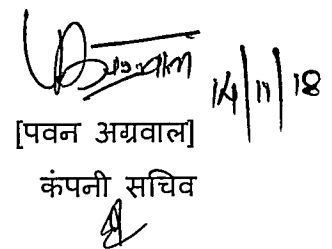 14/11/18
[पवन अग्रवाल]
कंपनी सचिव